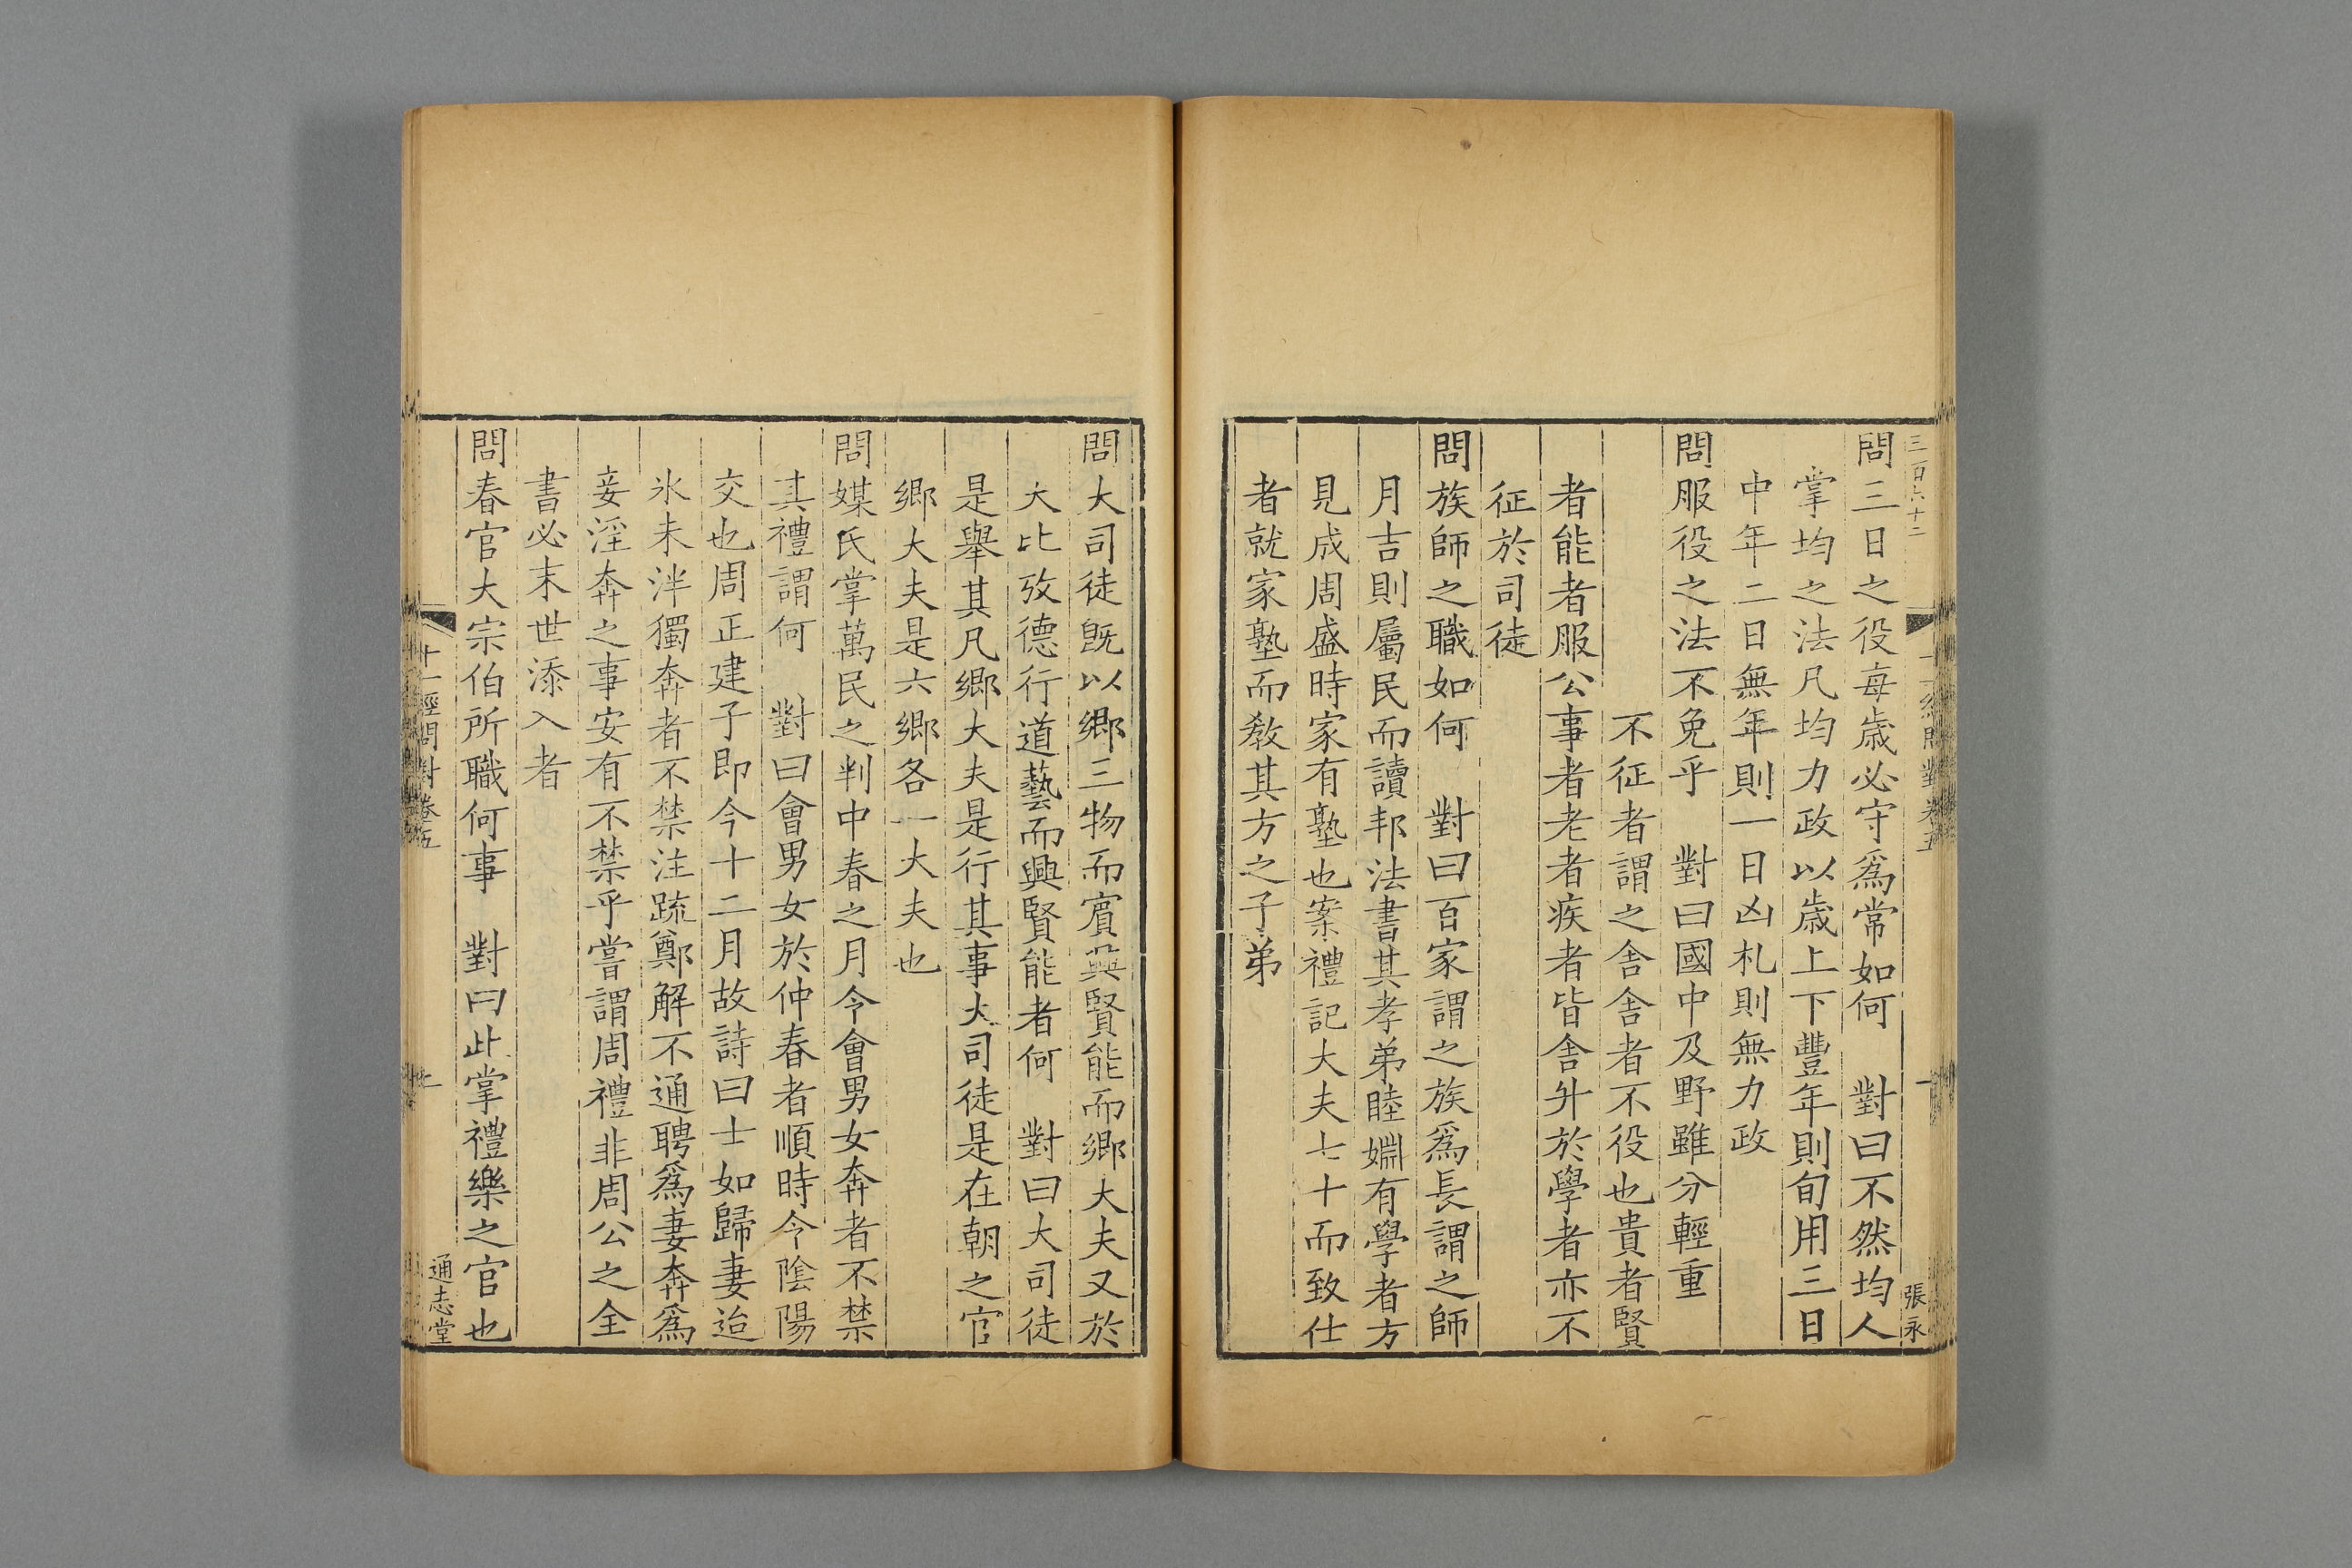 三百六十二
張永
問三日之役每歳必守爲常如何　對曰不然均人
掌均之法凡均力政以歳上下豐年則旬用三日
中年二日無年則一日凶札則無力政
問服役之法不免乎　對曰國中及野雖分輕重
不征者謂之舍舍者不役也貴者賢
者能者服公事者老者疾者皆舍升於學者亦不
征於司徒
問族師之職如何　對曰百家謂之族爲長謂之師
月吉則屬民而讀邦法書其孝弟睦婣有學者方
見成周盛時家有塾也案禮記大夫七十而致仕
者就家塾而教其方之子弟
問大司徒旣以鄉三物而賓興賢能而鄉大夫又於
大比攷德行道藝而興賢能者何　對曰大司徒
是舉其凡鄉大夫是行其事大司徒是在朝之官
鄉大夫是六鄉各一大夫也
問媒氏掌萬民之判中春之月令會男女奔者不禁
其禮謂何　對曰會男女於仲春者順時令陰陽
交也周正建子即今十二月故詩曰士如歸妻迨
氷未泮獨奔者不禁注疏鄭解不通聘爲妻奔爲
妾淫奔之事安有不禁乎嘗謂周禮非周公之全
書必末世添入者
問春官大宗伯所職何事　對曰此掌禮樂之官也
十一經問對卷五
通志堂